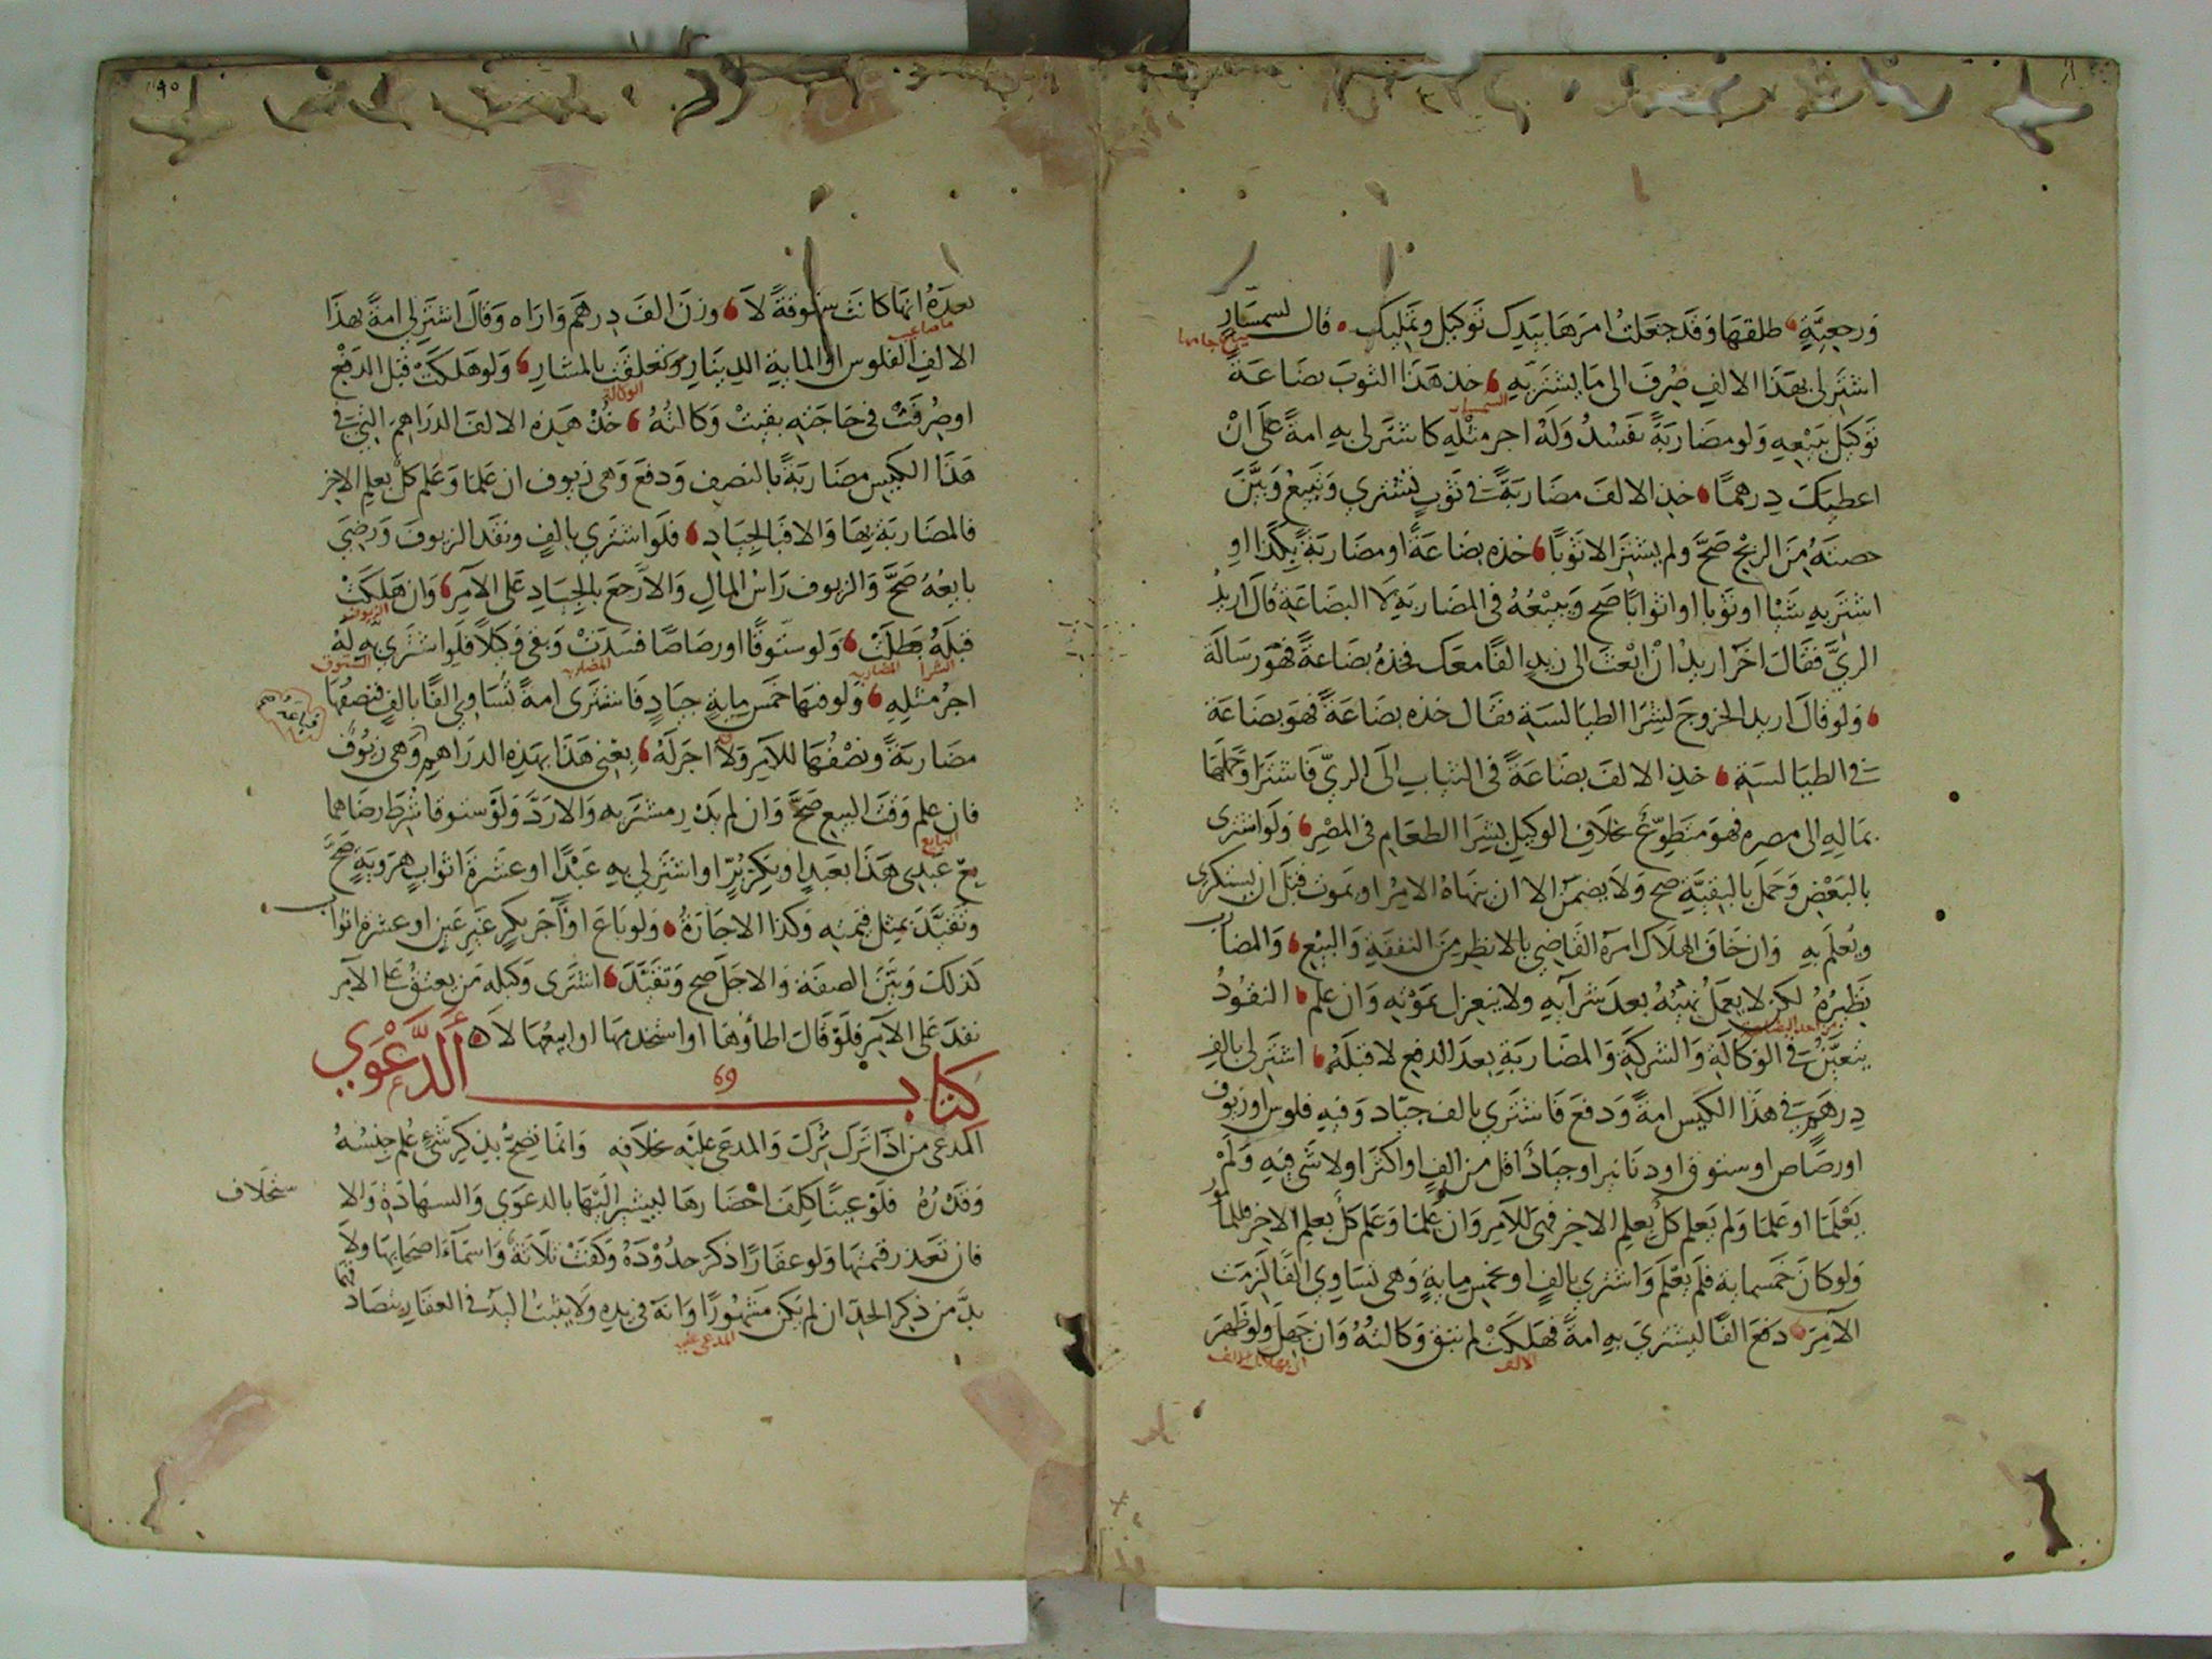 ورجعية طلقها وقد جعلت امرها بيدك توكيل وتمليك قال لسمسار
اشتر لى بهذا الالف صرف الى ما يشتريه خذ هذا الثوب بضاعة
توكيل ببيعه ولو مضاربة تفسد وله اجر مثله كاشتر لى به امة على ان
اعطيك درهما خذ الالف مضاربة في ثوب تشتري وتبيع وبين
حصته من الربح صح ولم يشتر الا ثوبا خذه بضاعة او مضاربة بكذا او
اشتر به شيا او ثوبا او اثوابا صح وبيعه في المضاربة لا البضاعة قال اريد
الري فقال اخر اريد ان ابعث الى زيد الفا معك فخذه بضاعة فهو رسالة
ولو قال اريد الخروج لشرا الطيالسة فقال خذه بضاعة فهو بضاعة
في الطيالسة خذ الالف بضاعة في الثياب الى الري فاشترا وحملها
بماله الى مصره فهو متطوع بخلاف الوكيل بشرا الطعام في المصر ولو اشترى
بالبعض وحمل بالبقية صح ولا يضمن الا ان نهاه الامر او يموت قبل ان يستكرى
ويعلم به وان خاف الهلاك امره القاضي بالانظر من النفقة والبيع والمضارب
نظيره لكن لا يعمل نهيه بعد شرآيه ولا ينعزل بموته وان علم النقود
يتعين في الوكالة والشركة والمضاربة بعد الدفع لا قبله اشتر لى بالف
درهم في هذا الكيس امة ودفع فاشترى بالف جياد وفيه فلوس او زيوف
او رصاص او ستوق او دنانير او جياد اقل من الف او اكثر او لا شى فيه ولم
يعلما او علما ولم يعلم كل بعلم الاخر فهى للآمر وان علما وعلم كل بعلم الاخر فللمامور
ولو كان خمسماية فلم يعلم واشترى بالف او بخمس ماية وهى تساوي الفا لزمت
الآمر دفع الفا ليشتري به امة فهلكت لم تبق وكالته وان جهل ولو ظهر
الالف
بعده انها كانت ستوقة لا وزن الف درهم واراه وقال اشتر لي امة بهذا
الالف الفلوس او الماية الدينار وتعلقت بالمشار ولو هلكت قبل الدفع
الوكالة
او صرفت في حاجته بقيت وكالته خذ هذه الالف الدراهم التي في
هذا الكيس مضاربة بالنصف ودفع وهى زيوف ان علما وعلم كل بعلم الاخر
فالمضاربة بها والا فبالجياد فلو اشترى بالف ونقد الزيوف ورضي
بايعه صح والزيوف راس المال والا رجع بالجياد على الآمر وان هلكت
الزيوف
قبله بطلت ولو ستوقا او رصاصا فسدت وبقى وكيلا فلو اشترى به له
الشرا المضاربه المضاربه الستوق
اجر مثله ولو فيها خمس ماية جياد فاشترى امة تساوي الفا بالف فنصفها
مضاربة ونصفها للآمر ولا اجر له بعني هذا بهذه الدراهم وهى زيوف
فان علم وقت البيع صح وان لم يدر مشتريه والا رد ولو ستوقا شرط رضاهما
البايع
بع عبدى هذا بعبد او بكر بر او اشتر لي به عبدا او عشرة اثواب هروية صح
وتقيد بمثل قيمته وكذا الاجارة ولو باع او آجر بكر غير عين او عشرة اثواب
كذلك وبين الصفة والاجل صح وتقيد اشترى وكيله من يعتق على الآمر
نفذ على الآمر فلو قال اطاوها او استخدمها او ابيعها لا
كتاب الدعوي
69
المدعى من اذا ترك ترك والمدعى عليه بخلافه وانما تصح بذكر شئ علم جنسه
وقدره فلو عينا كلف احضارها ليشير اليها بالدعوى والشهادة والا
ستحلاف
فان تعذر قيمتها ولو عقارا ذكر حدوده وكفت ثلاثة واسمآء اصحابها ولا
بد من ذكر الجد ان لم يكن مشهورا وانه في يده ولا يثبت اليد في العقار بتصادقهما
المدعى عليه